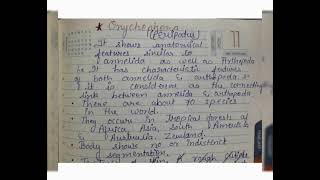 * Onychophora
(Peripatus)
It shows anatomical
features similar to
annelida as well as Arthropoda
It has characteristic features
of both annelida & arthropoda
& it is considered as the connecting
link between annelida & arthropoda
There are about 70 species
in the world.
They occurs in tropical forests of
Africa, Asia, South America
& Australia, Zealand.
Body shows no or indistinct
segmentation.
11